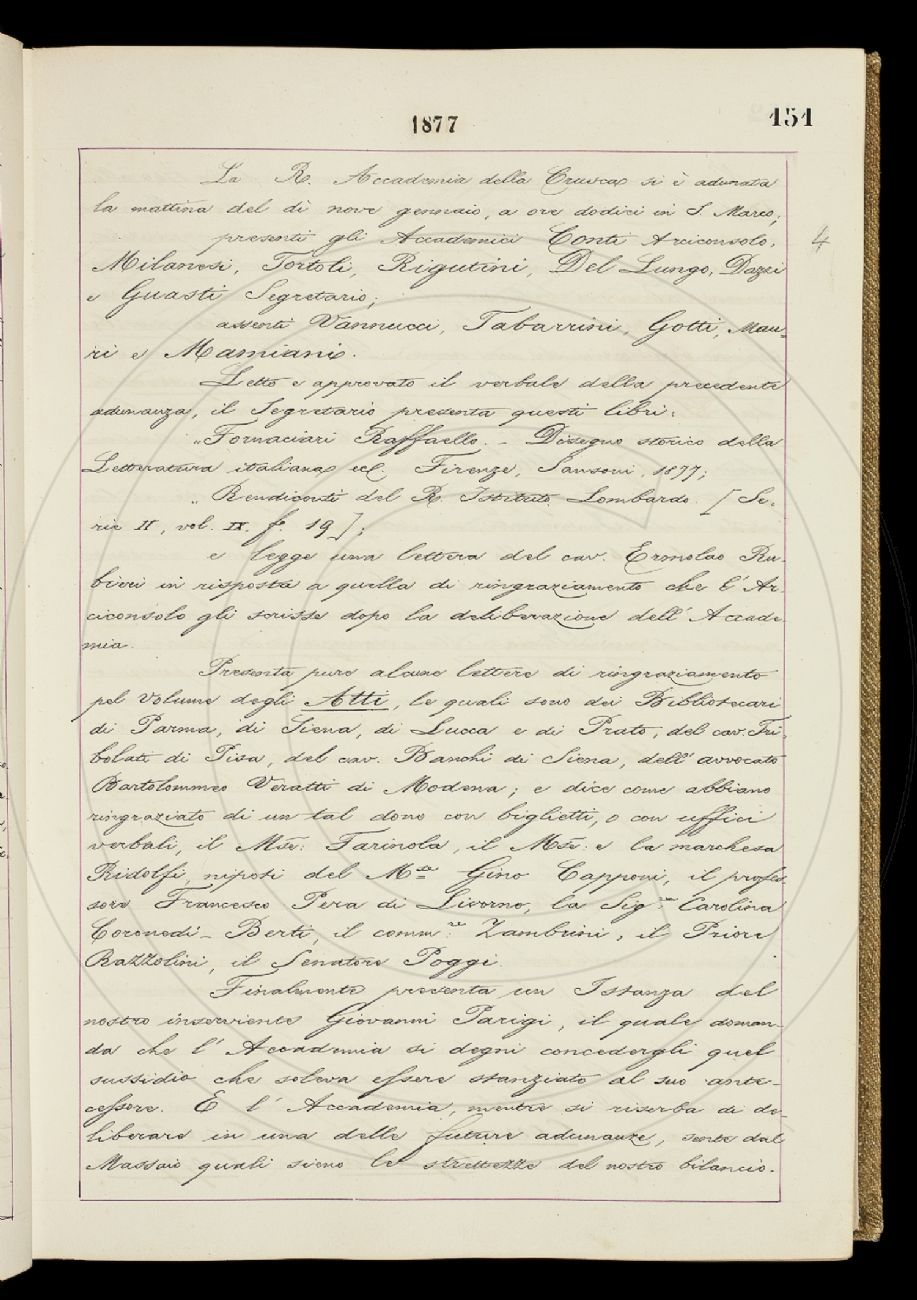 1877
151
La R. Accademia della Crusca si è adunata
la mattina del dì nove gennaio, a ore dodici in S. Marco;
presenti gli Accademici Conti Arciconsolo,
4
Milanesi, Tortoli, Rigutini, Del Lungo, Dazzi
e Guasti Segretario;
assenti Vannucci, Tabarrini, Gotti, Mau-
ri e Mamiani.
Letto e approvato il verbale della precedente
adunanza, il Segretario presenta questi libri:
"Fornaciari Raffaello. - Disegno storico della
Letteratura italiana ecc. Firenze, Sansoni, 1877;
" Rendiconti del R. Istituto Lombardo. [Se-
rie II, vol. IX. f.º 19];
e legge una lettera del cav. Ermolao Ru-
bieri in risposta a quella di ringraziamento che l'Ar-
ciconsolo gli scrisse dopo la deliberazione dell'Accade-
mia.
Presenta pure alcune lettere di ringraziamento
pel volume degli Atti, le quali sono dei Bibliotecari
di Parma, di Siena, di Lucca e di Prato, del cav. Tri-
bolati di Pisa, del cav. Banchi di Siena, dell'avvocato
Bartolommeo Veratti di Modena; e dice come abbiano
ringraziato di un tal dono con biglietti, o con uffici
verbali, il Mse: Farinola, il Mse: e la marchesa
Ridolfi, nipoti del Mse Gino Capponi, il profes-
sore Francesco Pera di Livorno, la Sig.ra Carolina
Coronedi-Berti, il comm.re Zambrini, il Priore
Razzolini, il Senatore Poggi.
Finalmente presenta un Istanza del
nostro inserviente Giovanni Parigi, il quale doman-
da che l'Accademia si degni concedergli quel
sussidio che soleva essere stanziato al suo ante-
cessore. E l'Accademia, mentre si riserba di de-
liberare in una delle future adunanze, sente dal
Massaio quali sieno le strettezze del nostro bilancio.